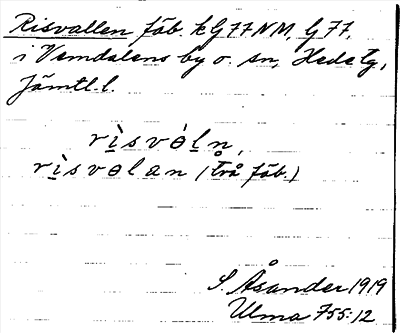 Risvallen fäb. kG77NM, G77,
i Vemdalens by o. sn, Hede tg,
Jämtl. l.
rìsvɵ̀ln,
rìsvɵlan (två fäb.)
S. Åsander 1919
Ulma 755:12